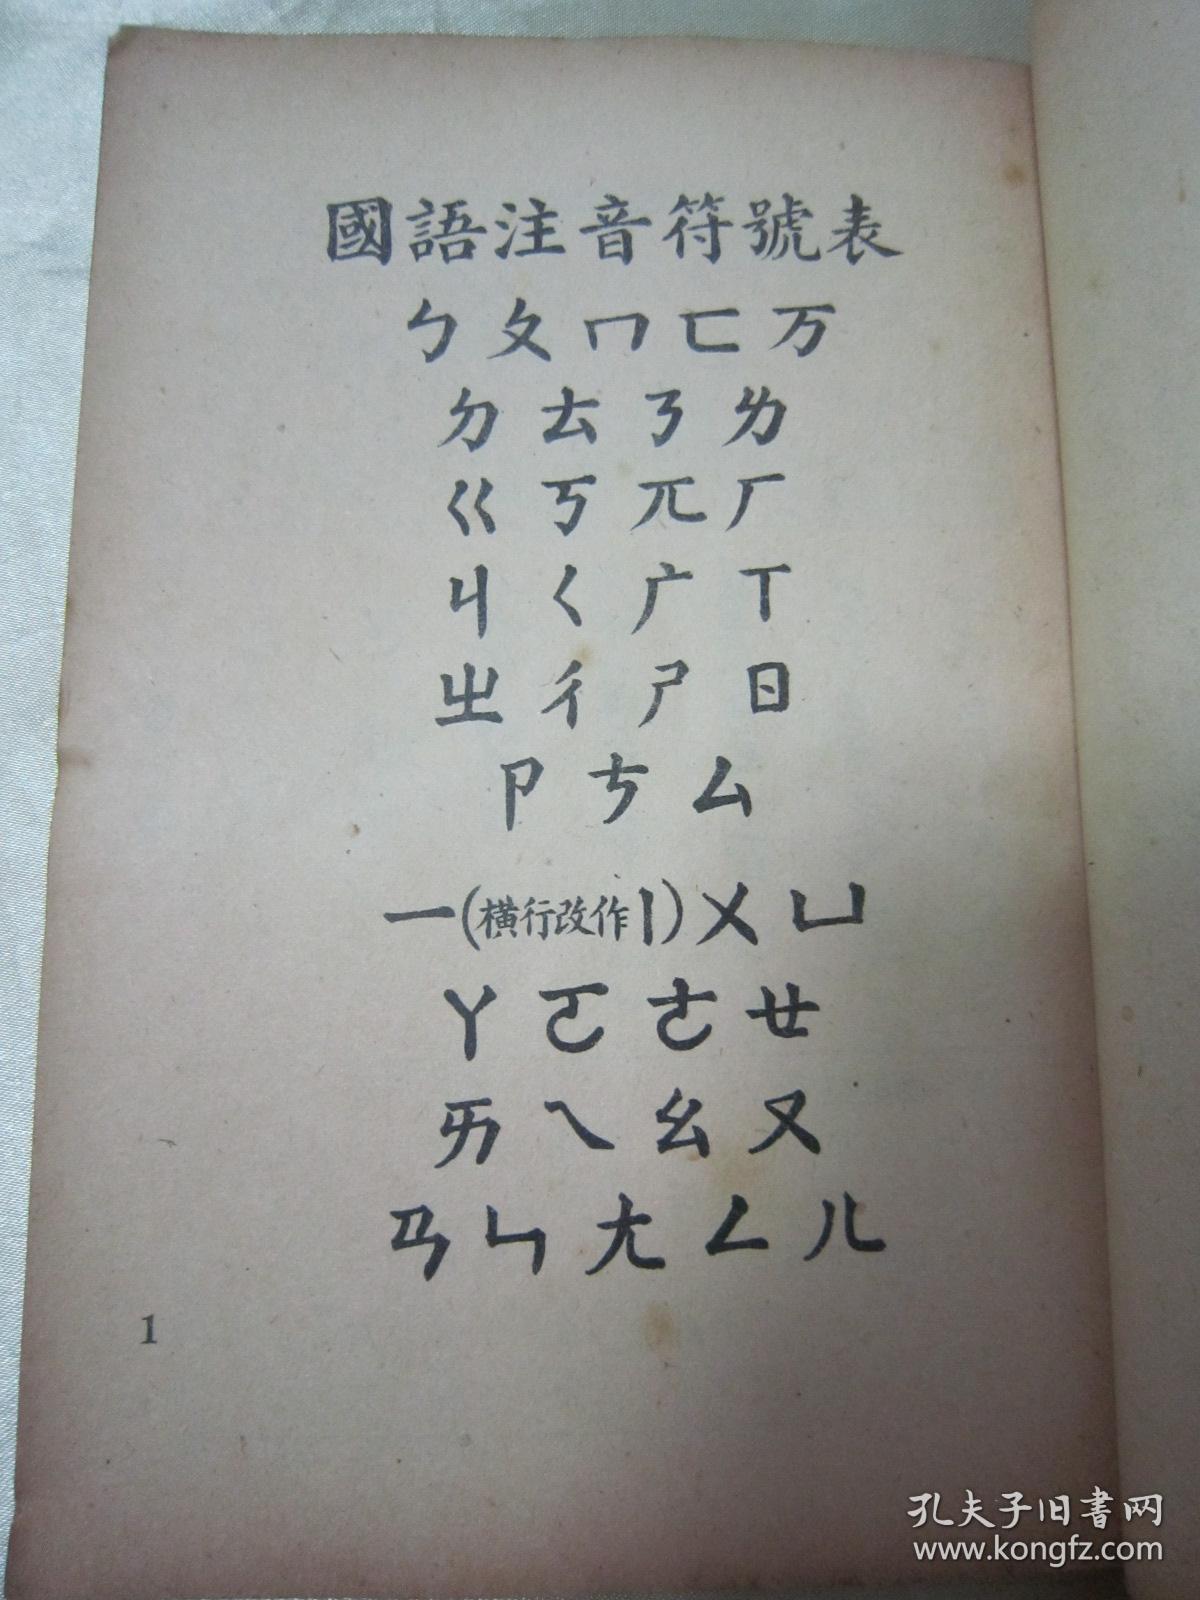 國語注音符號表
ㄅㄆㄇㄈㄪ
ㄉㄊㄋㄌ
ㄍㄎㄫㄏ
ㄐㄑㄬㄒ
ㄓㄔㄕㄖ
ㄗㄘㄙ
一(橫行改作丨)ㄨㄩ
ㄚㄛㄜㄝ
ㄞㄟㄠㄡ
ㄢㄣㄤㄥㄦ
1
孔夫子旧書网
www.kongfz.com